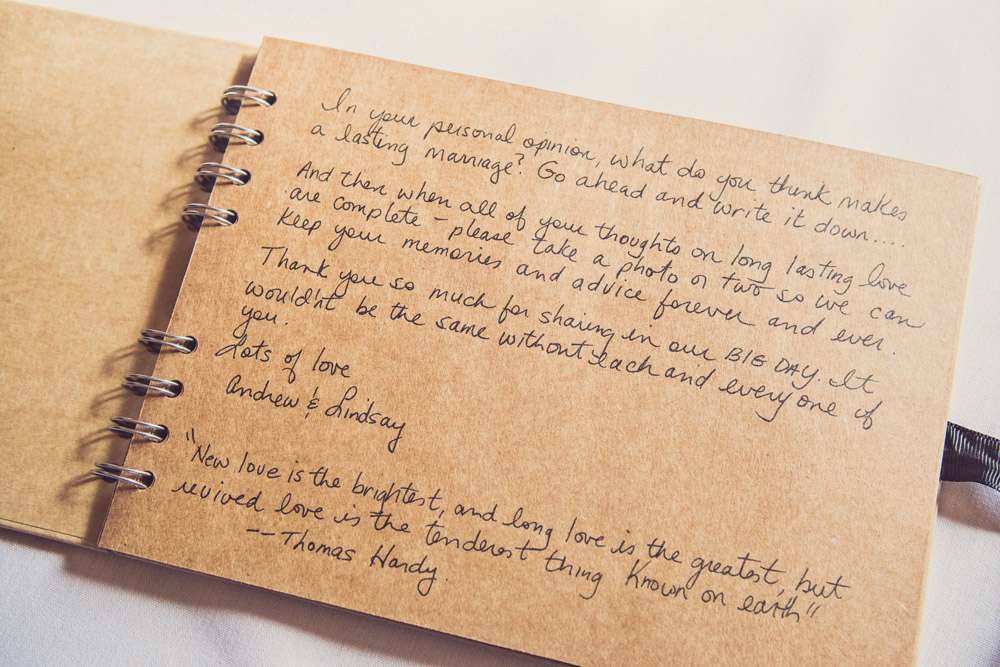 In your personal opinion, what do you think makes
a lasting marriage? Go ahead and write it down....
And then when all of your thoughts on long lasting love
are complete - please take a photo or two so we can
keep your memories and advice forever and ever.
Thank you so much for sharing in our BIG DAY. It
would'nt be the same without each and every one of
you.
Lots of love
Andrew & Lindsay
"New love is the brightest, and long love is the greatest, but
revived love is the tenderest thing known on earth"
-- Thomas Hardy.